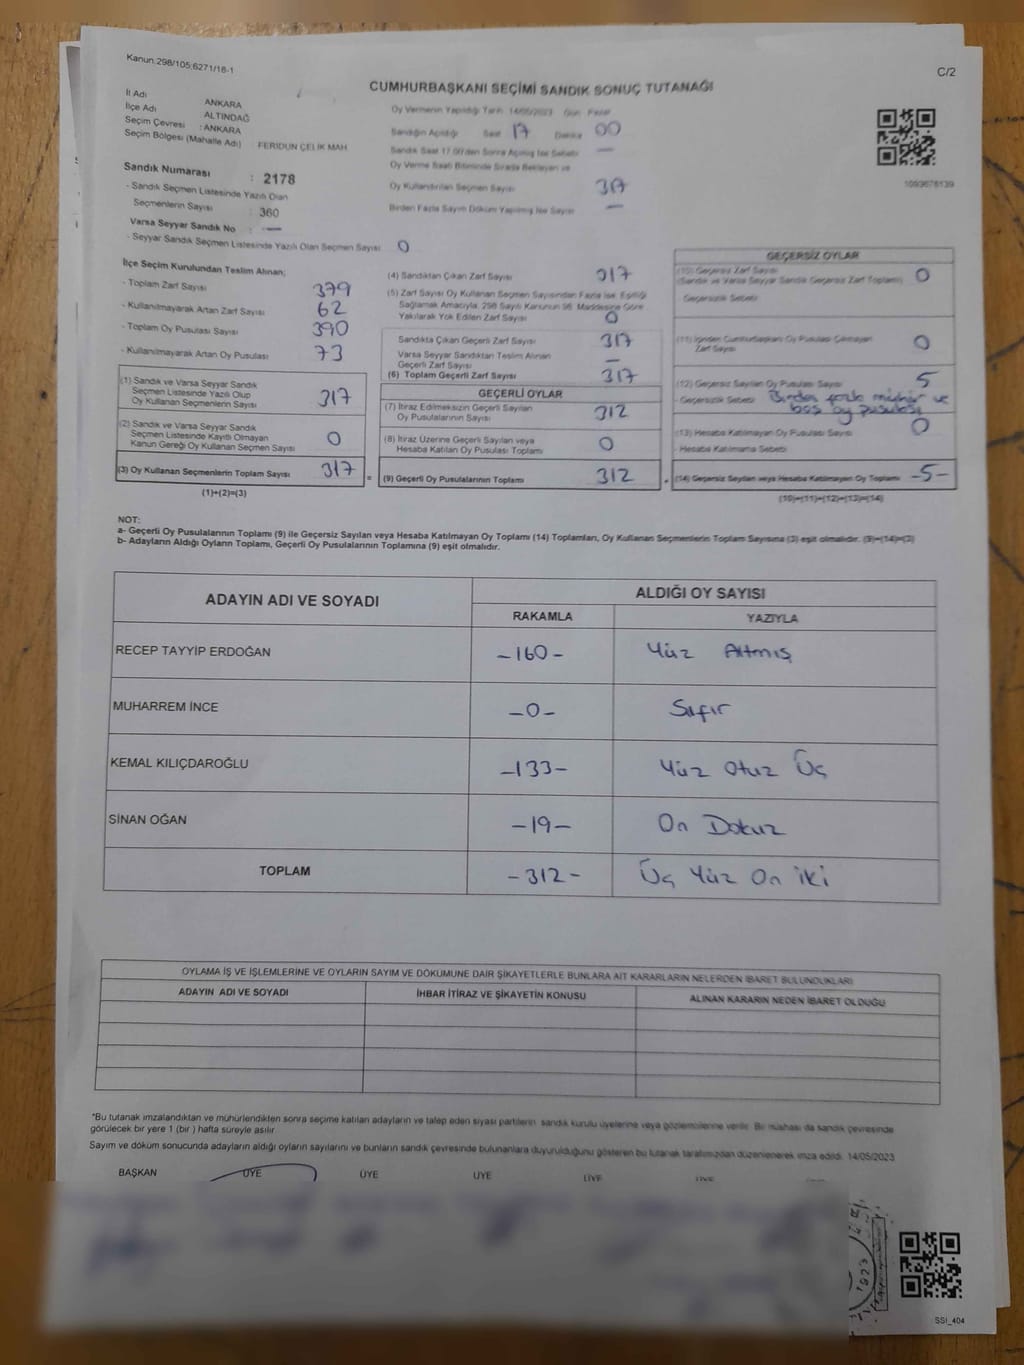 Kanun:298/105;6271/18-1
C/2
CUMHURBAŞKANI SEÇİMİ SANDIK SONUÇ TUTANAĞI
İl Adı ANKARA
İlçe Adı ALTINDAĞ
Seçim Çevresi : ANKARA
Seçim Bölgesi (Mahalle Adı) FERİDUN ÇELİK MAH
Sandık Numarası : 2178
- Sandık Seçmen Listesinde Yazılı Olan
Seçmenlerin Sayısı : 360
Varsa Seyyar Sandık No : —
- Seyyar Sandık Seçmen Listesinde Yazılı Olan Seçmen Sayısı 0
Oy Vermenin Yapıldığı Tarih 14/05/2023 Gün Pazar
Sandığın Açıldığı Saat 17 Dakika 00
Sandık Saat 17.00'den Sonra Açılmış İse Sebebi —
Oy Verme Saati Bitiminde Sırada Bekleyen ve
Oy Kullandırılan Seçmen Sayısı 317
Birden Fazla Sayım Döküm Yapılmış İse Sayısı —
1093678139
İlçe Seçim Kurulundan Teslim Alınan;
- Toplam Zarf Sayısı 379
- Kullanılmayarak Artan Zarf Sayısı 62
- Toplam Oy Pusulası Sayısı 390
- Kullanılmayarak Artan Oy Pusulası 73
(1) Sandık ve Varsa Seyyar Sandık
Seçmen Listesinde Yazılı Olup
Oy Kullanan Seçmenlerin Sayısı 317
(2) Sandık ve Varsa Seyyar Sandık
Seçmen Listesinde Kayıtlı Olmayan
Kanun Gereği Oy Kullanan Seçmen Sayısı 0
(3) Oy Kullanan Seçmenlerin Toplam Sayısı 317
(1)+(2)=(3)
(4) Sandıktan Çıkan Zarf Sayısı 317
(5) Zarf Sayısı Oy Kullanan Seçmen Sayısından Fazla İse, Eşitliği
Sağlamak Amacıyla, 298 Sayılı Kanunun 98. Maddesine Göre
Yakılarak Yok Edilen Zarf Sayısı 0
Sandıkta Çıkan Geçerli Zarf Sayısı 317
Varsa Seyyar Sandıktan Teslim Alınan
Geçerli Zarf Sayısı —
(6) Toplam Geçerli Zarf Sayısı 317
GEÇERLİ OYLAR
(7) İtiraz Edilmeksizin Geçerli Sayılan
Oy Pusulalarının Sayısı 312
(8) İtiraz Üzerine Geçerli Sayılan veya
Hesaba Katılan Oy Pusulası Toplamı 0
= (9) Geçerli Oy Pusulalarının Toplamı 312
GEÇERSİZ OYLAR
(10) Geçersiz Zarf Sayısı
(Sandık ve Varsa Seyyar Sandık Geçersiz Zarf Toplamı) 0
- Geçersizlik Sebebi
(11) İçinden Cumhurbaşkanı Oy Pusulası Çıkmayan
Zarf Sayısı 0
(12) Geçersiz Sayılan Oy Pusulası Sayısı 5
- Geçersizlik Sebebi Birden fazla mühür ve
boş oy pusulası
(13) Hesaba Katılmayan Oy Pusulası Sayısı 0
- Hesaba Katılmama Sebebi
+ (14) Geçersiz Sayılan veya Hesaba Katılmayan Oy Toplamı -5-
(10)+(11)+(12)+(13)=(14)
NOT:
a- Geçerli Oy Pusulalarının Toplamı (9) ile Geçersiz Sayılan veya Hesaba Katılmayan Oy Toplamı (14) Toplamları, Oy Kullanan Seçmenlerin Toplam Sayısına (3) eşit olmalıdır. (9)+(14)=(3)
b- Adayların Aldığı Oyların Toplamı, Geçerli Oy Pusulalarının Toplamına (9) eşit olmalıdır.
ADAYIN ADI VE SOYADI
ALDIĞI OY SAYISI
RAKAMLA YAZIYLA
RECEP TAYYİP ERDOĞAN -160- Yüz Altmış
MUHARREM İNCE -0- Sıfır
KEMAL KILIÇDAROĞLU -133- Yüz Otuz Üç
SİNAN OĞAN -19- On Dokuz
TOPLAM -312- Üç Yüz On iki
OYLAMA İŞ VE İŞLEMLERİNE VE OYLARIN SAYIM VE DÖKÜMÜNE DAİR ŞİKAYETLERLE BUNLARA AİT KARARLARIN NELERDEN İBARET BULUNDUKLARI
ADAYIN ADI VE SOYADI İHBAR İTİRAZ VE ŞİKAYETİN KONUSU ALINAN KARARIN NEDEN İBARET OLDUĞU
*Bu tutanak imzalandıktan ve mühürlendikten sonra seçime katılan adayların ve talep eden siyasi partilerin sandık kurulu üyelerine veya gözlemcilerine verilir. Bir nüshası da sandık çevresinde
görülecek bir yere 1 (bir ) hafta süreyle asılır.
Sayım ve döküm sonucunda adayların aldığı oyların sayılarını ve bunların sandık çevresinde bulunanlara duyurulduğunu gösteren bu tutanak tarafımızdan düzenlenerek imza edildi. 14/05/2023
BAŞKAN ÜYE ÜYE ÜYE ÜYE
1923
SSI_404